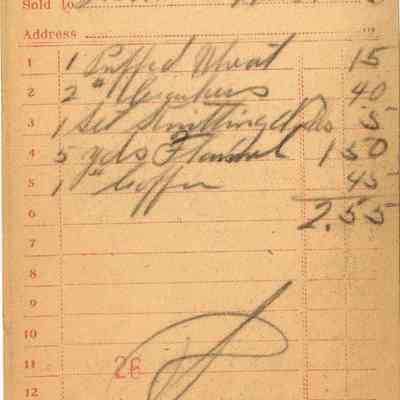 Sold to
Address
1 1 Puffed Wheat 15
2 2 " Crackers 40
3 1 Set Knitting 5
4 5 yds Flannel 1 50
5 1 " Coffee 45
6 2.55
7
8
9
10
11 26
12